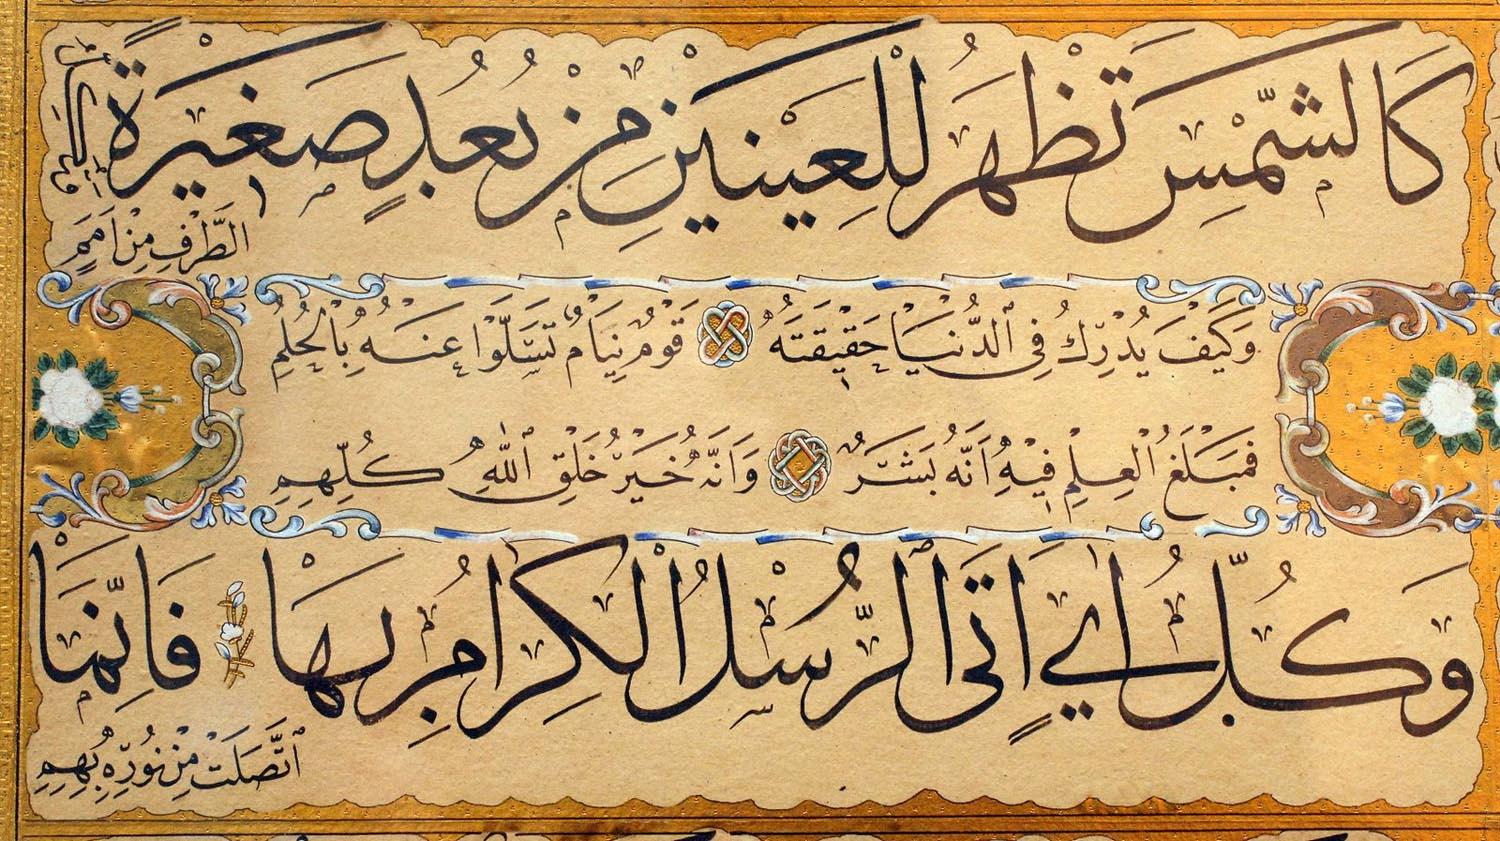 كَالشَّمْسِ تَظْهَرُ لِلْعَيْنَيْنِ مِنْ بُعُدٍ صَغِيرَةً وَتُكِلُّ
الطَّرْفَ مِنْ اَمَمِ
وَكَيْفَ يُدْرِكُ فِى الدُّنْيَا حَقِيقَتَهُ قَوْمٌ نِيَامٌ تَسَلَّوْا عَنْهُ بِالْحُلُمِ
فَمَبْلَغُ الْعِلْمِ فِيهِ اَنَّهُ بَشَرٌ وَاَنَّهُ خَيْرُ خَلْقِ اللّٰهِ كُلِّهِمِ
وَكُلُّ اٰيٍ اَتَى الرُّسْلُ الْكِرَامُ بِهَا فَاِنَّمَا
اتَّصَلَتْ مِنْ نُورِهِ بِهِمِ